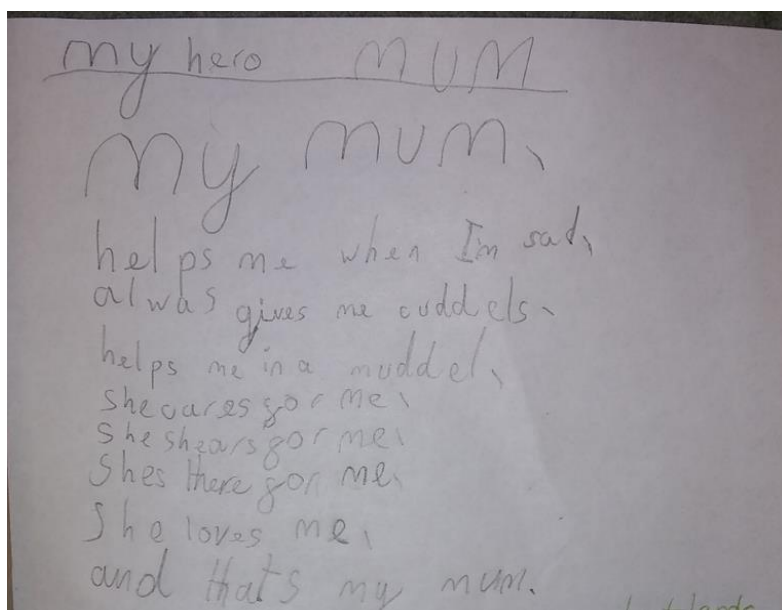 my hero MUM
my mum,
helps me when I'm sad,
alwas gives me cuddels,
helps me in a muddel,
she cares for me,
she shears for me,
shes there for me,
she loves me,
and that's my mum.